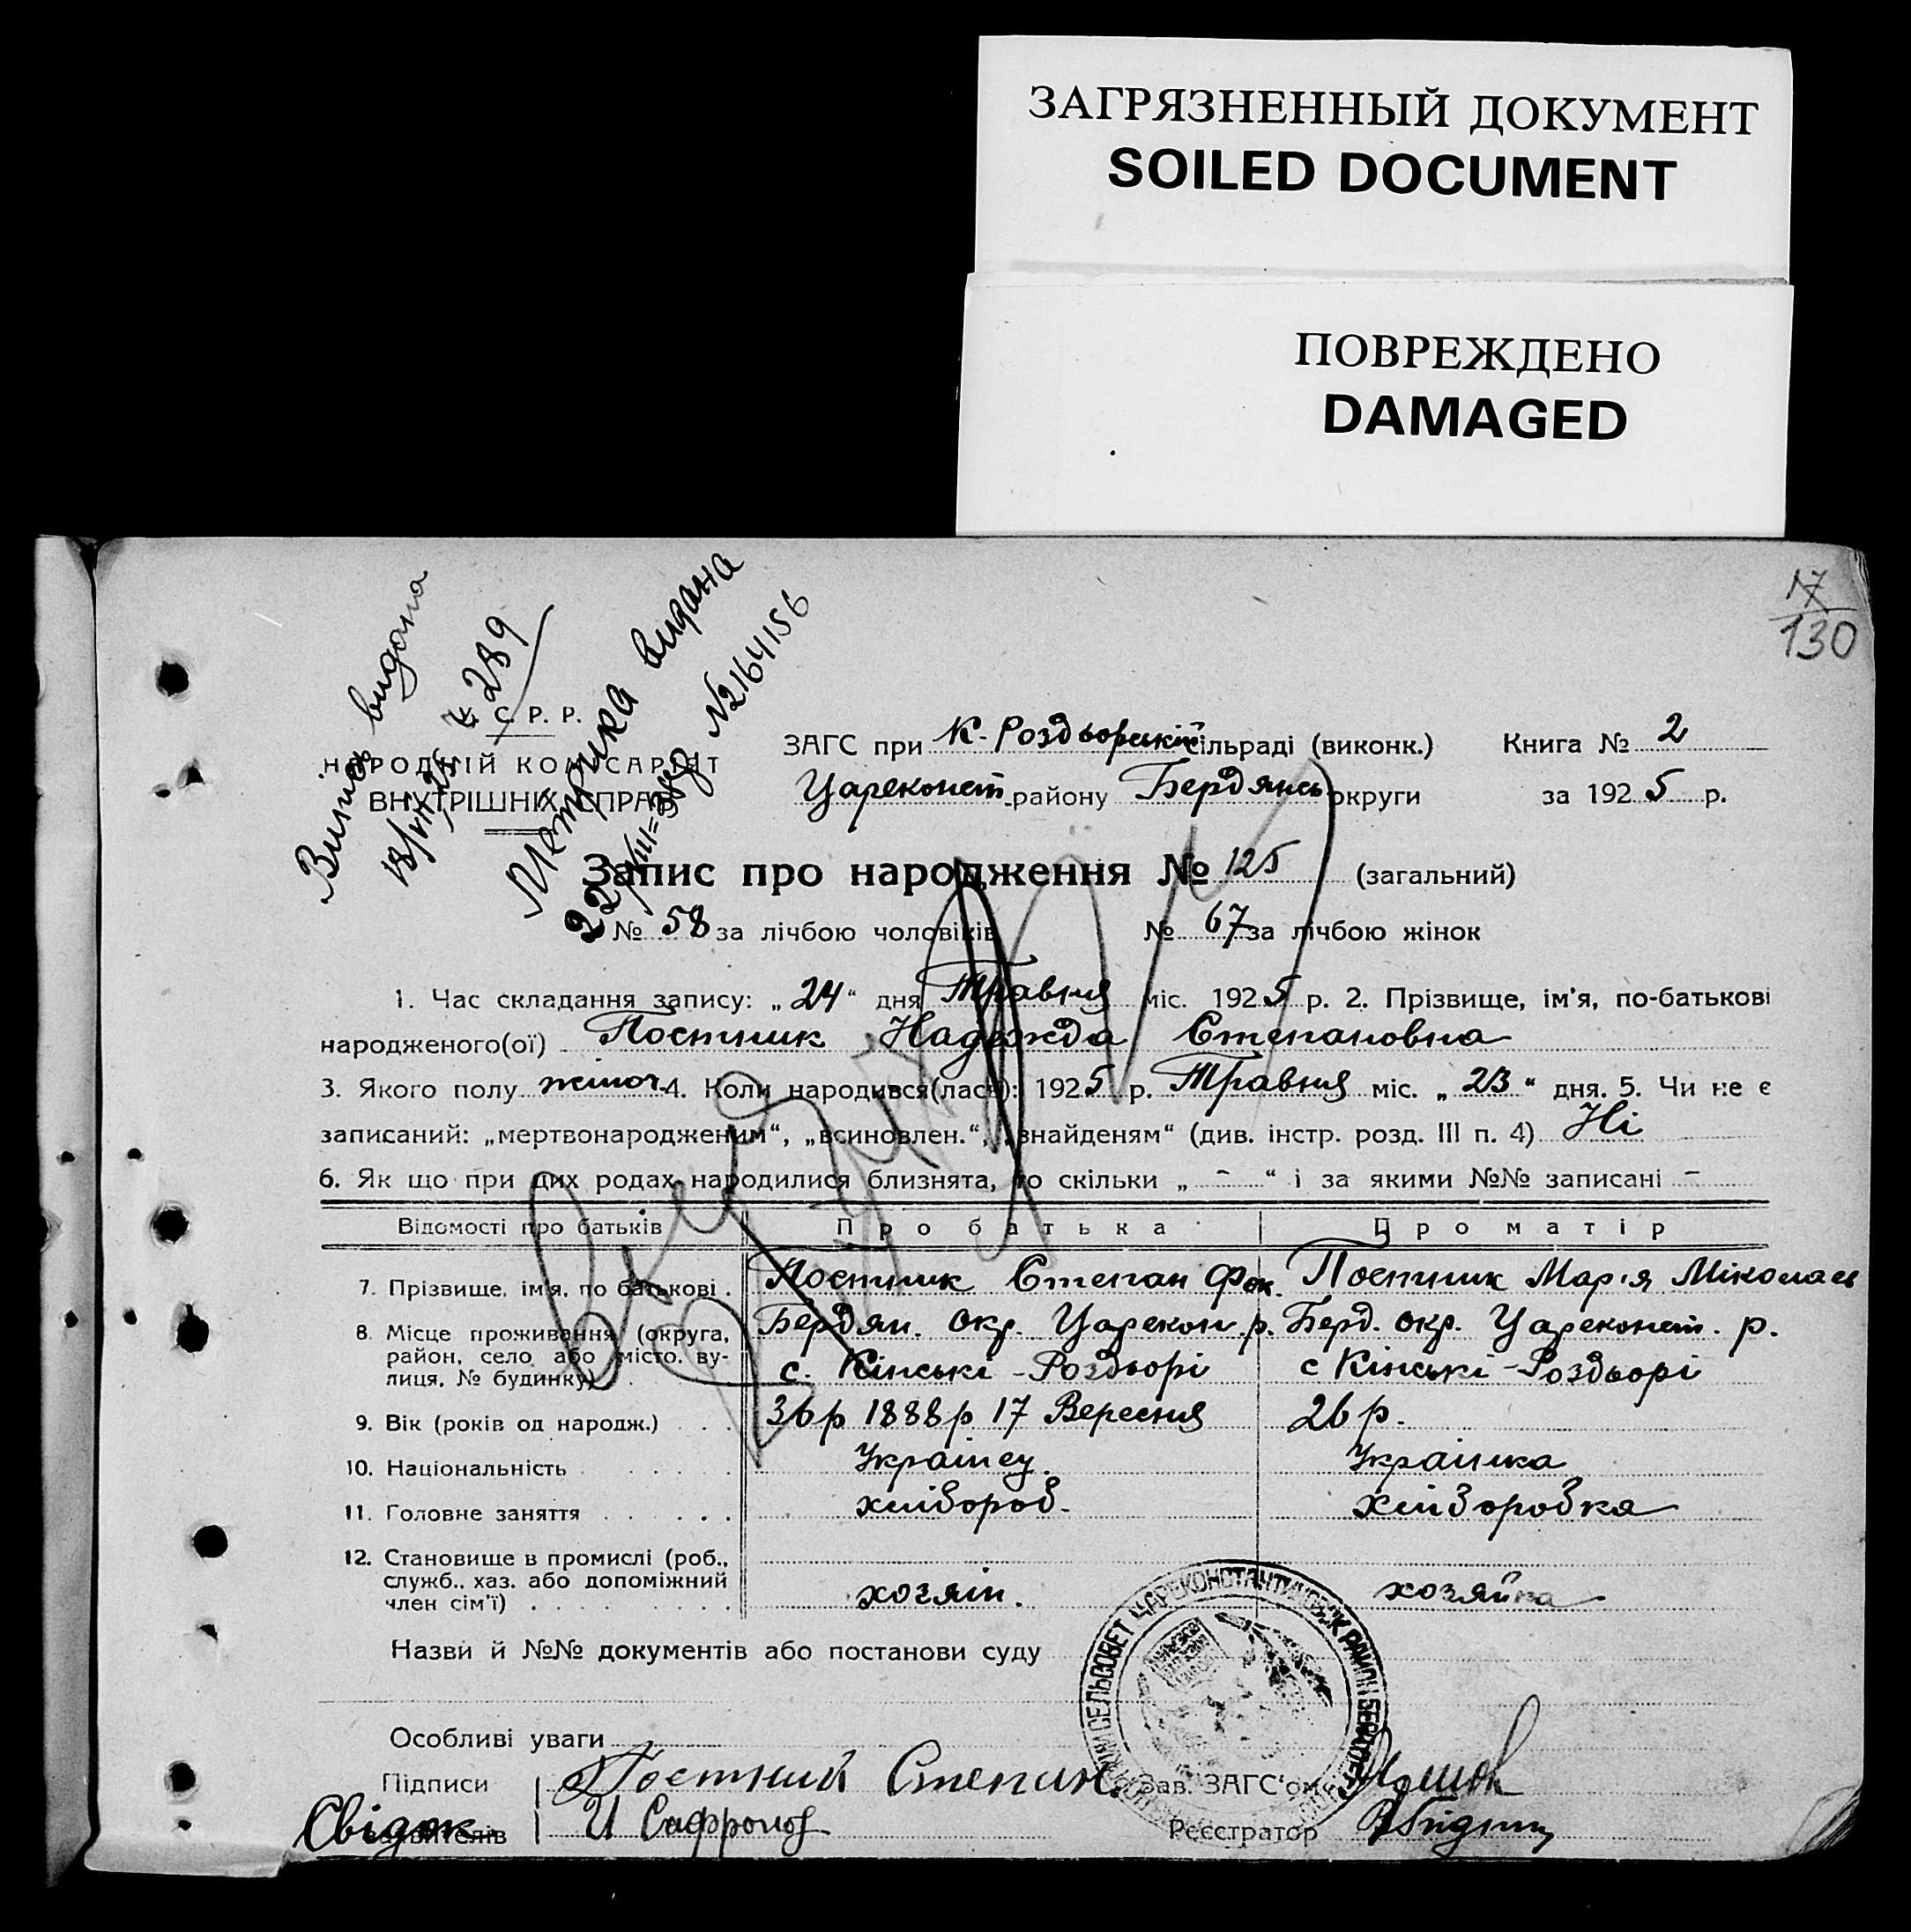 ЗАГРЯЗНЕННЫЙ ДОКУМЕНТ
SOILED DOCUMENT
ПОВРЕЖДЕНО
DAMAGED
17
130
Випись видана
18/VII 25 № 289
Метрика видана
22/III=37р №2164156
У. С. Р. Р.
НАРОДНІЙ КОМІСАРІЯТ
ВНУТРІШНІХ СПРАВ
ЗАГС при К-Роздорській сільраді (виконк.) Книга № 2
Цареконст. району Бердянсь округи за 1925 р.
Запис про народження № 125 (загальний)
№ 58 за лічбою чоловіків № 67 за лічбою жінок
1. Час складання запису: „24“ дня Травня міс. 1925 р. 2. Прізвище, ім’я, по-батькові
народженого(ої) Постник Надежда Степановна
3. Якого полу жіноч. 4. Коли народився(лася): 1925 р. Травня міс. „23“ дня. 5. Чи не є
записаний: „мертвонародженим“, „всиновлен.“, „знайденям“ (див. інстр. розд. III п. 4) Ні
6. Як що при цих родах народилися близнята, то скільки „ - “ і за якими №№ записані -
Відомості про батьків Про батька Про матір
7. Прізвище, ім’я, по батькові . Постник Степан Фок. Постник Мар’я Міколаев
8. Місце проживання (округа, район, село або місто, вулиця, № будинку) Бердян. окр. Царекон. р. Берд. окр. Цареконст. р.
с. Кінські-Роздорі с Кінські-Роздорі
9. Вік (років од народж.) . . . 36р 1888р 17 Вересня 26 р.
10. Національність . . . . . Українец. Українка
11. Головне заняття . . . . . хлібороб. хліборобка
12. Становище в промислі (роб., служб., хаз. або допоміжний член сім’ї) . . . хозяін. хозяйка
Назви й №№ документів або постанови суду
ЦАРЕКОНСТАНТИНОВСК РАЙОН
СЕЛЬСОВЕТ
Особливі уваги
Підписи Постний Степан. Зав. ЗАГС’ом
Свідок И Сафронов Реєстратор